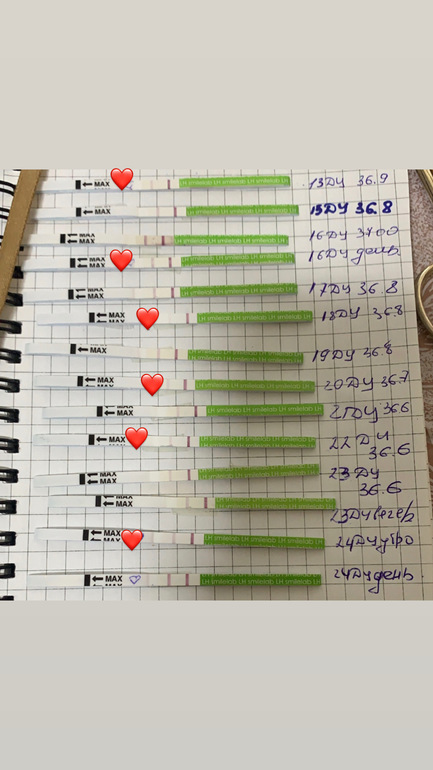 MAX LH smilelab LH smilelab LH smilelab LH 13ДЧ 36.9
MAX LH smilelab LH smilelab LH smilelab LH 15ДЧ 36.8
MAX LH smilelab LH smilelab LH smilelab LH 16ДЧ 37.00
MAX LH smilelab LH smilelab LH smilelab LH 16ДЧ день
MAX LH smilelab LH smilelab LH smilelab LH 17ДЧ 36.8
MAX LH smilelab LH smilelab LH smilelab LH 18ДЧ 36.8
MAX LH smilelab LH smilelab LH smilelab LH 19ДЧ 36.8
MAX LH smilelab LH smilelab LH smilelab LH 20ДЧ 36.7
MAX LH smilelab LH smilelab LH smilelab LH 21ДЧ 36.6
MAX LH smilelab LH smilelab LH smilelab LH 22 ДЧ
36.6
MAX LH smilelab LH smilelab LH smilelab LH 23ДЧ
36.6
MAX LH smilelab LH smilelab LH smilelab LH 23ДЧ вечер
MAX LH smilelab LH smilelab LH smilelab LH 24ДЧ утро
MAX LH smilelab LH smilelab LH smilelab LH 24ДЧ день